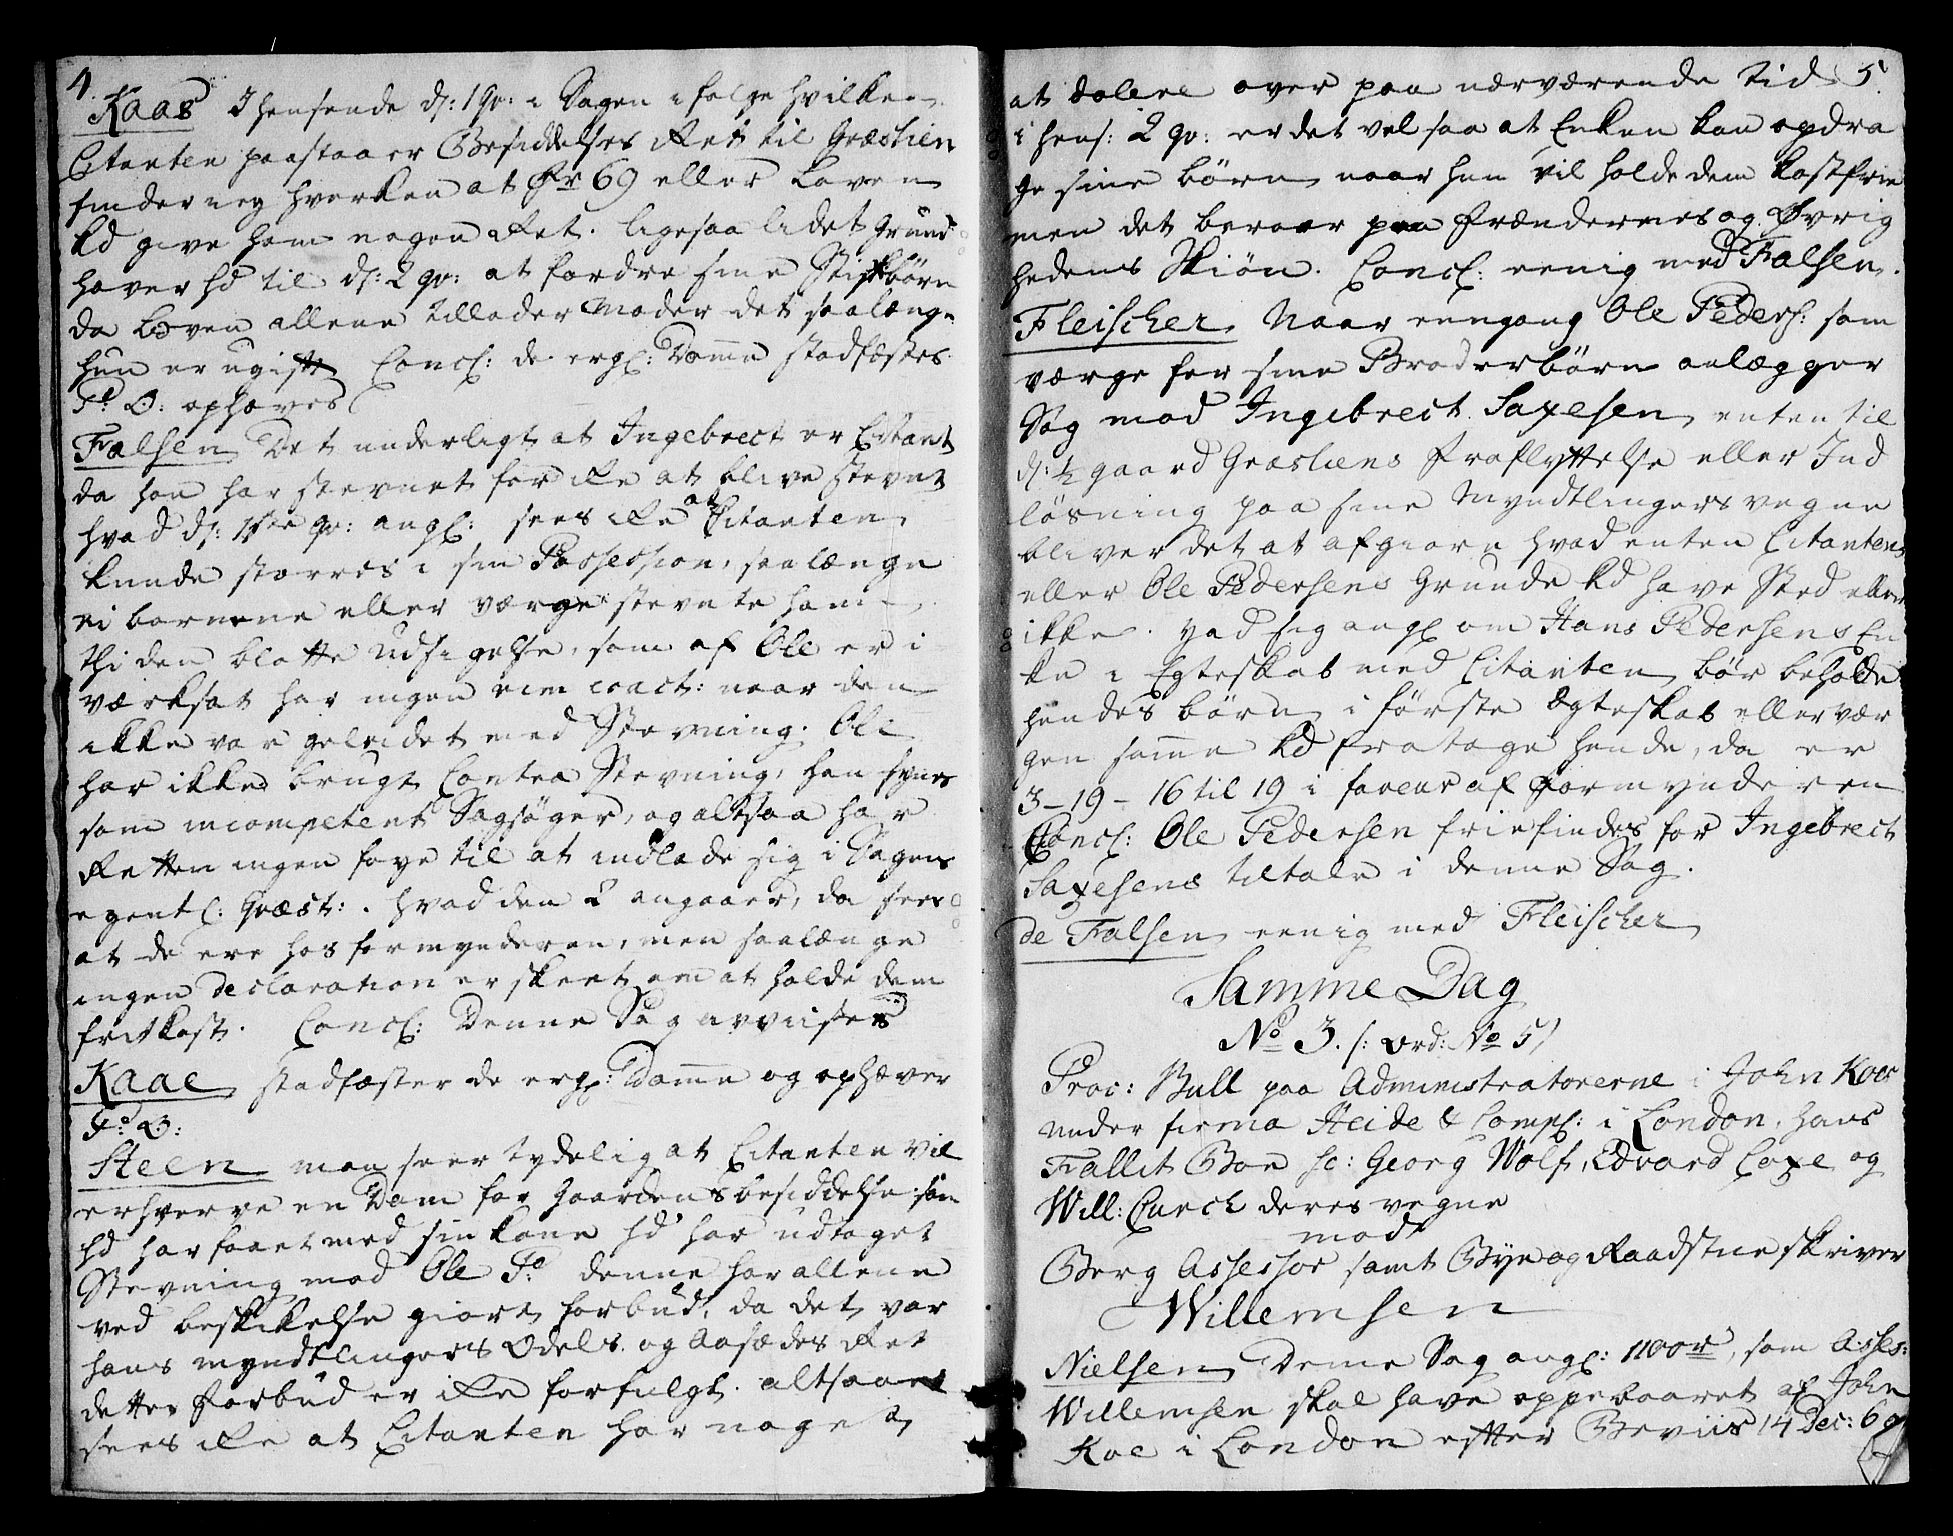 4.
Kaas I henseende d: 1 qv: i Sagen i følge hvilken
Citanten paastaaer Besiddelses Ret til Græslien
finder ieg hverken at Fr 69 eller Loven
kd give ham nogen Ret. ligesaa lidet Grund
haver hd til d: 2 qv: at fordre sine Stifbörn
da Loven allene tillader Moder det saalænge
hun er ugift Concl: de ergl: Domme stadfæstes
F: O: ophæves
Falsen Det underligt at Ingebrect er Citant
da han har stevnet for ike at blive stevnet
hvad d: 1ste qv: angl: sees ike at Citanten
kunde storres i sin Possession, saalænge
ei børnene eller værge stevnte ham
thi den blotte Udsigelse, som af Ole er i
værksat har ingen vim coact: naar den
ikke var geleidet med Stevning. Ole
har ikke brugt Contra Stevning, han synes
som incompetent Sagsöger, og altsaa har
Retten ingen føye til at indlade sig i Sagens
egentl: Qvæst:. hvad den 2 angaaer, da sees
at de ere hos formynderen, men saalænge
ingen declaration er skeet om at holde dem
frit kost. Concl: Denne Sag avviises
Kaae stadfæster de ergl: Domme og ophæver
F: O:
Steen man seer tydelig at Citanten vil
erhverve en Dom for Gaardens besiddelse som
hd har faaet med sin kone hd har udtaget
Stevning mod Ole P: denne har allene
ved beskikelse giort forbud, da det var
hans myndtlingers Odels og Aasædes Ret
dette forbud er ike forfulgt. altsaa
sees ike at Citanten har noget
5.
at dolere over paa nærværende tid
i hens: 2 qv: er det vel saa at Enken kan opdra
ge sine börn naar hun vil holde dem kostfrie
men det beroer paa Frændernes og Øvrig
hedens Skiön. Concl: eenig med Falsen.
Fleischer. Naar eengang Ole Peders: som
værge for sine Broderbörn anlægger
Sag mod Ingebrect Saxesen, enten til
d: ½ gaard Græsliens fraflyttelse eller Ind
lösning paa sine Myndtlingers vegne
bliver det at afgiøre hvad enten Citantens
eller Ole Pedersens Grunde kd have Sted eller
ikke. hvad sig angl om Hans Pedersens En
ke i Egteskab med Citanten bør beholde
hendes börn i förste Ægteskab eller vær
gen samme kd fratage hende, da er
3-19-16 til 19 i faveur af Formynderen
Concl: Ole Pedersen friefindes for Ingebrect
Saxesens tiltale i denne Sag.
de Falsen eenig med Fleischer
Samme Dag
No 3. /: ord: No 5/
Proc: Bull paa Administratorerne i John Koes
under firma Heide & Comp: i London, hans
Fallit Boe sc: Georg Wolf, Edvard Coxe og
Will: Curch deres vegne
mod
Berg Assessor samt Bye og Raadstueskriver
Willemsen
Nielsen Denne Sag angl: 1100 r, som Asses:
Willemsen skal have oppebaaret af John
Koe i London efter Beviis 14 Dec: 69